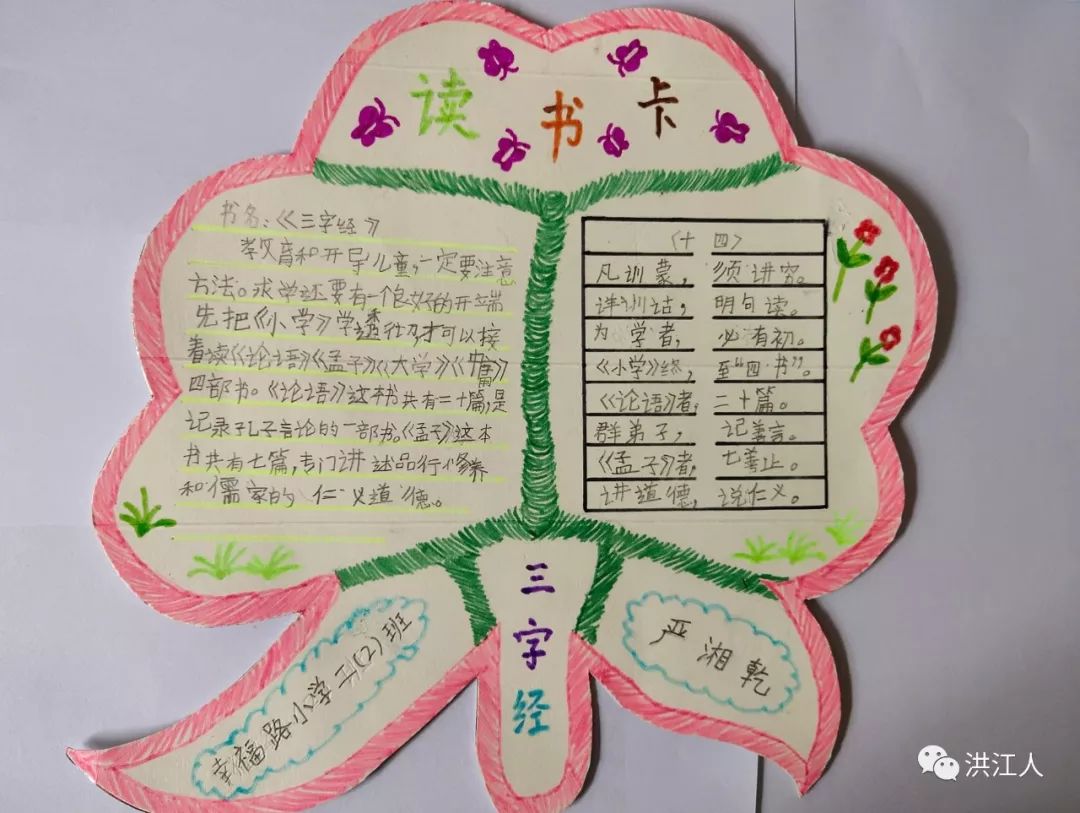 读书卡
书名:《三字经》
孝父育和开导儿童,一定要注意
方法。求学还要有一个良好的开端
先把《小学》学透彻才可以接
着读《论语》《孟子》《大学》《中庸》
四部书。《论语》这本书共有二十篇,是
记录孔子言论的一部书。《孟子》这本
书共有七篇,专门讲述品行修养
和儒家的仁义道德。
〈十四〉
凡训蒙,须讲究。
详训诂,明句读。
为学者,必有初。
《小学》终,至“四书”。
《论语》者,二十篇。
群弟子,记善言。
《孟子》者,七篇止。
讲道德,说仁义。
三字经
幸福路小学三(2)班
严湘乾
洪江人